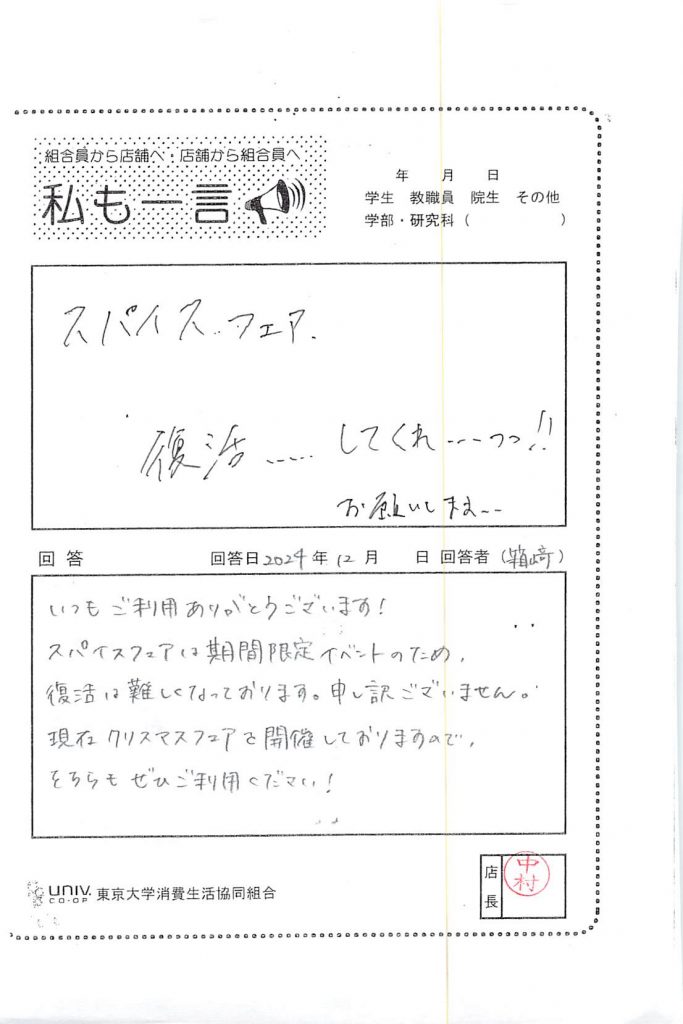 組合員から店舗へ・店舗から組合員へ
私も一言
年 月 日
学生 教職員 院生 その他
学部・研究科( )
スパイス..フェア.
復活..... してくれ---っっ!!
お願いします--
回答 回答日2024年12月 日 回答者(箱崎)
いつもご利用ありがとうございます!
スパイスフェアは期間限定イベントのため,
復活は難しくなっております。申し訳ございません。
現在クリスマスフェアを開催しておりますので,
そちらもぜひご利用ください!
UNIV. CO-OP 東京大学消費生活協同組合
店長
中村